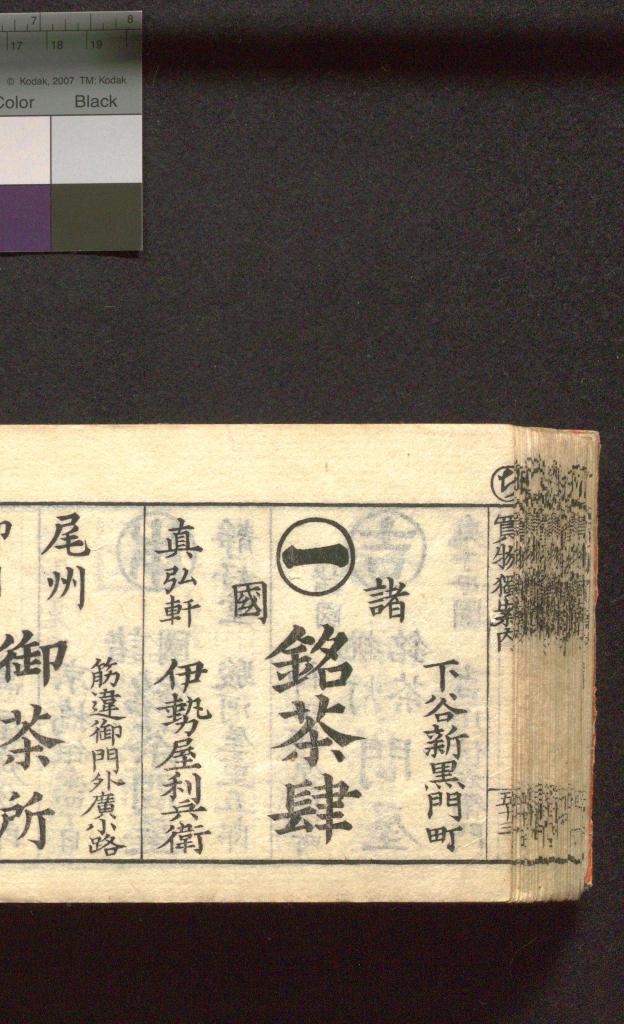 7 8
17 18 19
© Kodak, 2007 TM: Kodak
Color Black
買物獨案内
五十三
下谷新黒門町
諸國
一
銘茶肆
真弘軒 伊勢屋利兵衛
筋違御門外廣小路
尾州
御茶所